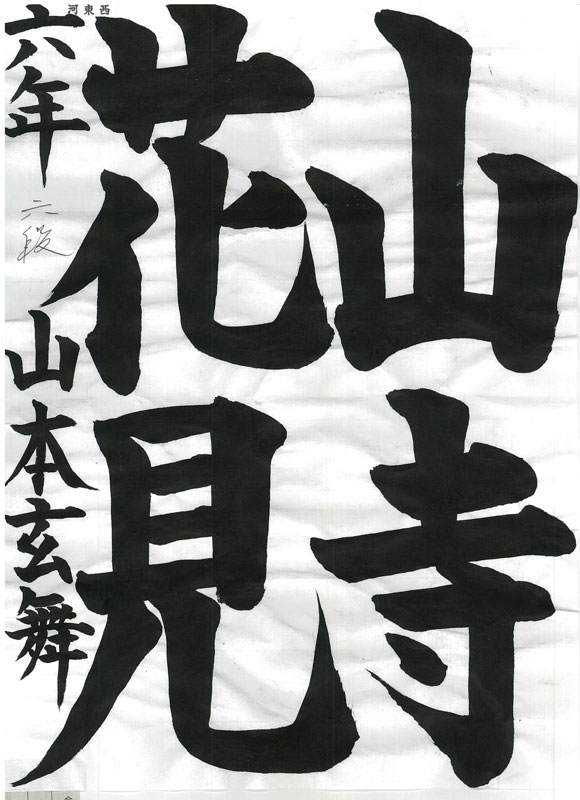 山寺
花見
六年 六段 山本玄舞
西東河